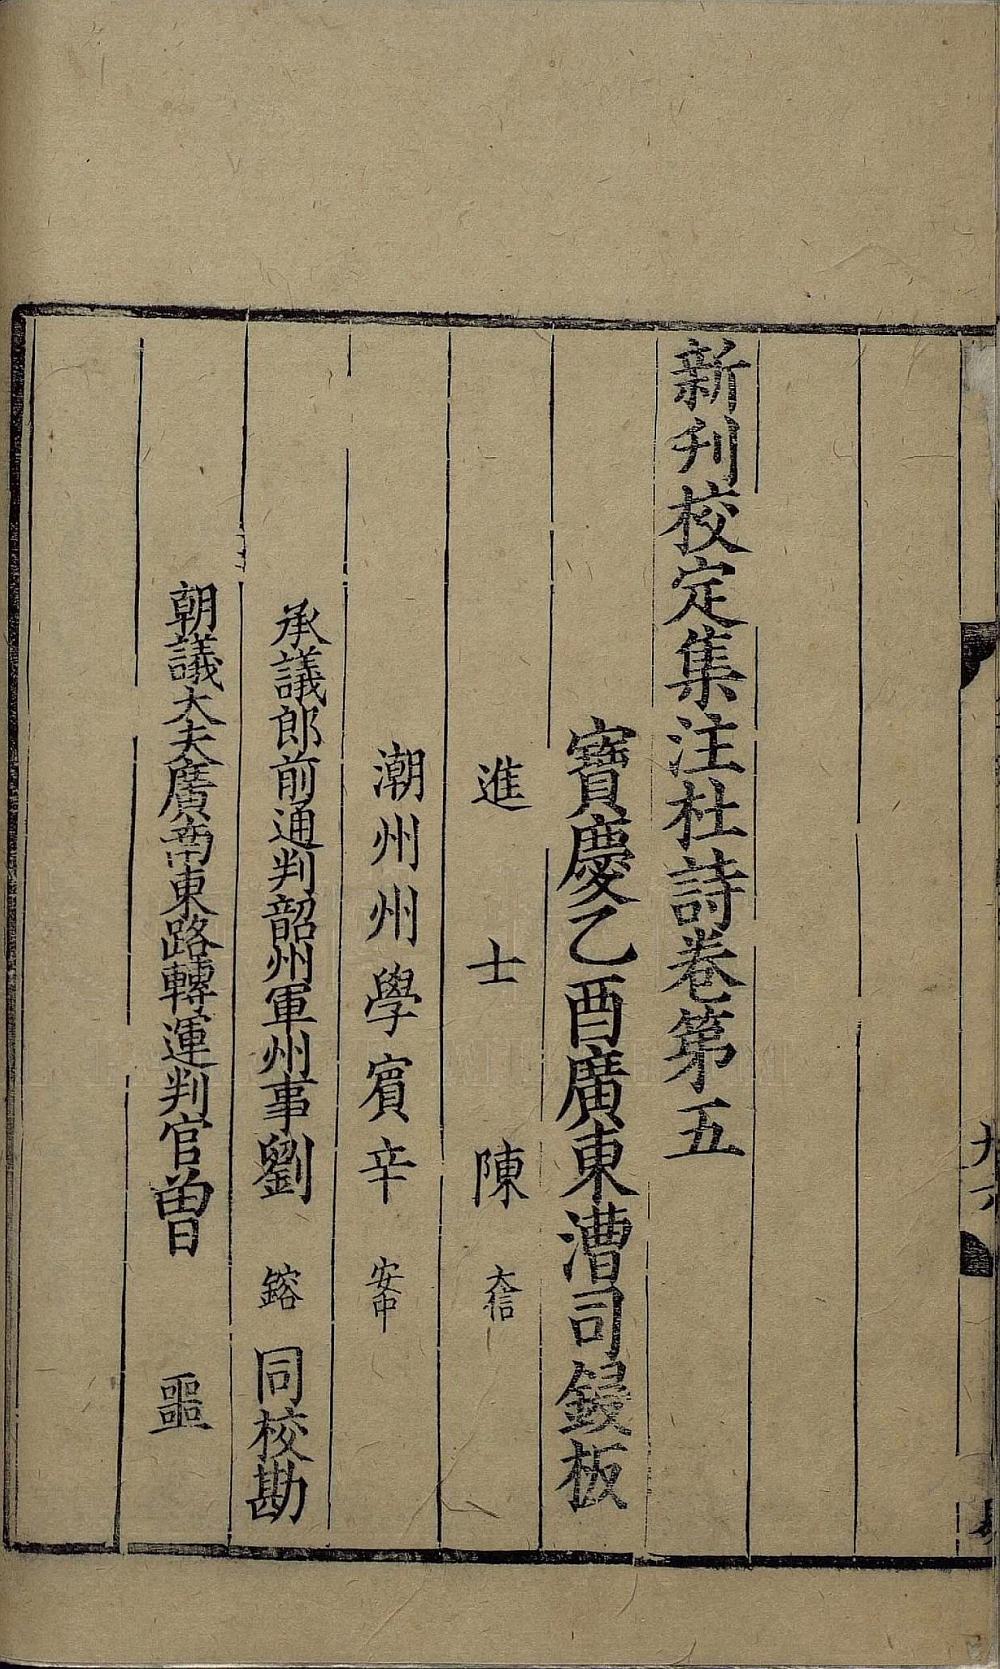 新刋校定集注杜詩卷第五
寶慶乙酉廣東漕司鋟板
進士陳大信
潮州州學賔辛安中
承議郎前通判韶州軍州事劉鎔同校勘
朝議大夫廣南東路轉運判官曾噩